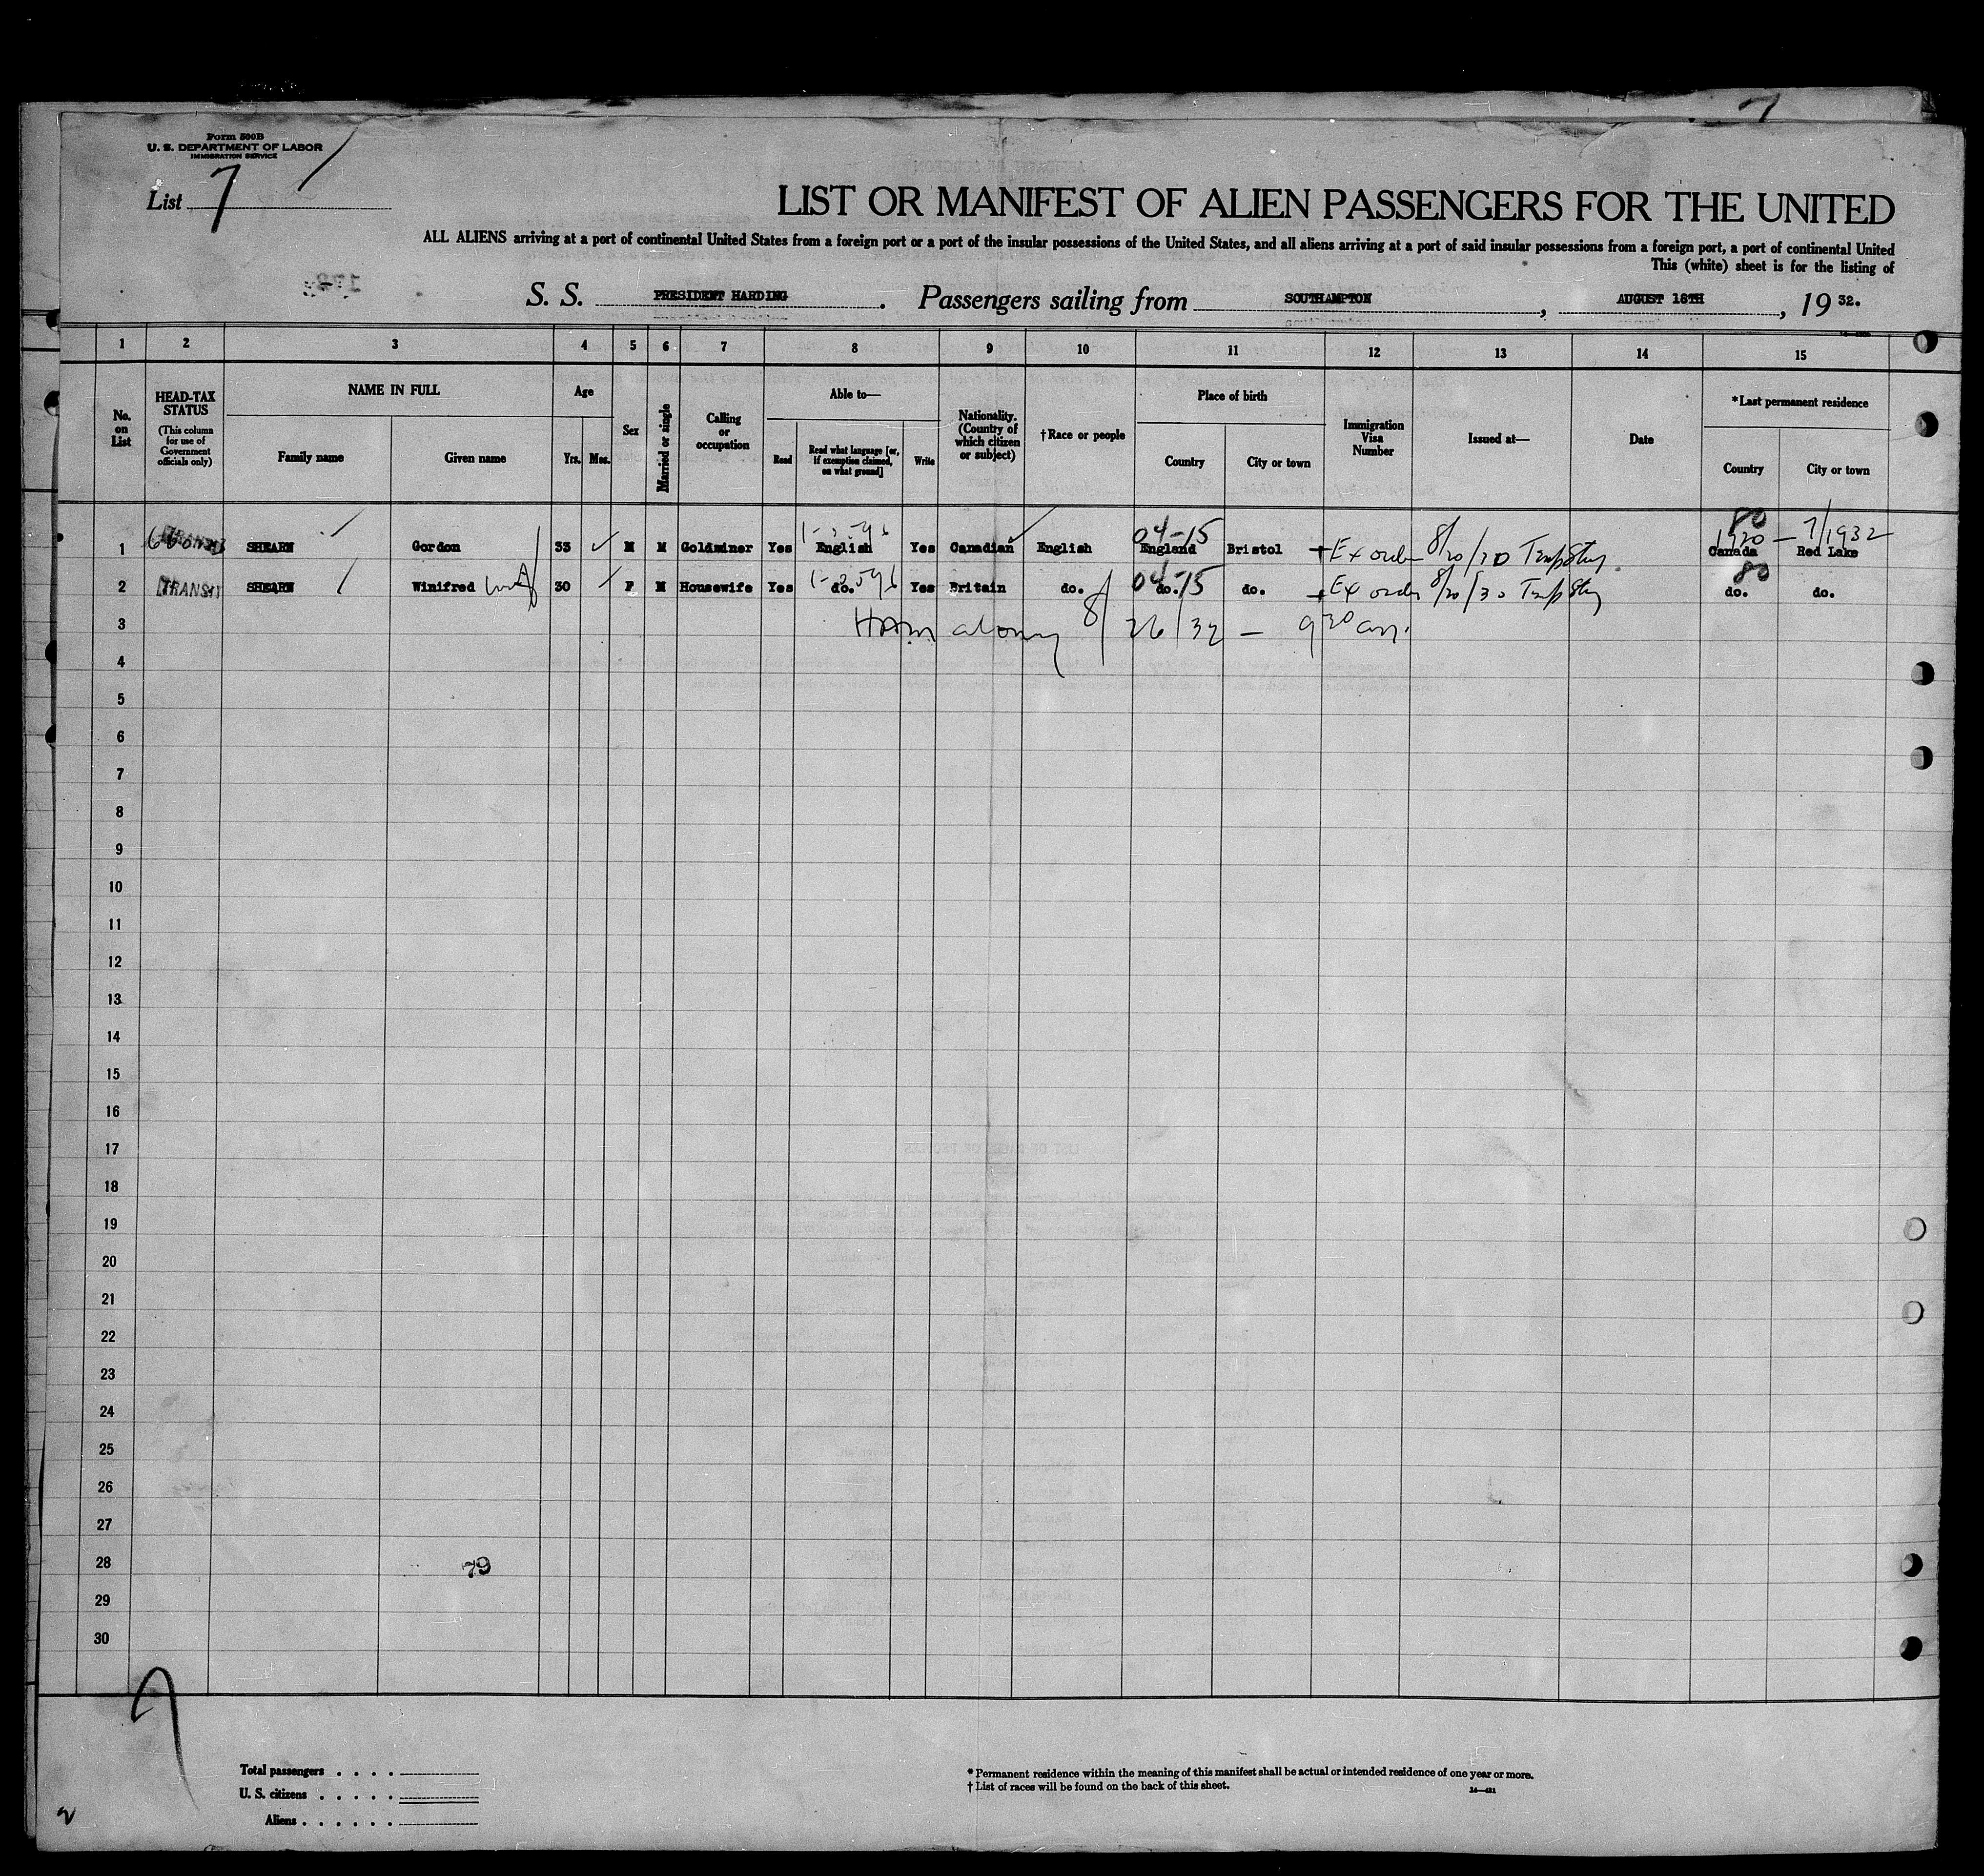 Form 500B
U. S. DEPARTMENT OF LABOR
IMMIGRATION SERVICE
List 7
LIST OR MANIFEST OF ALIEN PASSENGERS FOR THE UNITED
ALL ALIENS arriving at a port of continental United States from a foreign port or a port of the insular possessions of the United States, and all aliens arriving at a port of said insular possessions from a foreign port, a port of continental United
This (white) sheet is for the listing of
S. S. PRESIDENT HARDING. Passengers sailing from SOUTHAMPTON, AUGUST 18TH, 19 32.
1 2 3 4 5 6 7 8 9 10 11 12 13 14 15
No. on List
HEAD-TAX STATUS
(This column for use of Government officials only)
NAME IN FULL
Family name Given name
Age
Yrs. Mos.
Sex
Married or single
Calling or occupation
Able to—
Read
Read what language [or, if exemption claimed, on what ground]
Write
Nationality. (Country of which citizen or subject)
†Race or people
Place of birth
Country City or town
Immigration Visa Number
Issued at—
Date
*Last permanent residence
Country City or town
80 1920 - 7/1932
1 SHEARN Gordon 33 M M Goldminer Yes English Yes Canadian English 04-15 England Bristol Ex order 8/20/30 Canada Red Lake
80
2 TRANSIT SHEARN Winifred wife 30 F M Housewife Yes do. Yes Britain do. 04-15 do. do. Ex order 8/20/30 do. do.
3 8/26/32 — 9 30 am.
4
5
6
7
8
9
10
11
12
13
14
15
16
17
18
19
20
21
22
23
24
25
26
27
28 79
29
30
Total passengers . . . .
U. S. citizens . . . . .
Aliens . . . . . .
* Permanent residence within the meaning of this manifest shall be actual or intended residence of one year or more.
† List of races will be found on the back of this sheet.